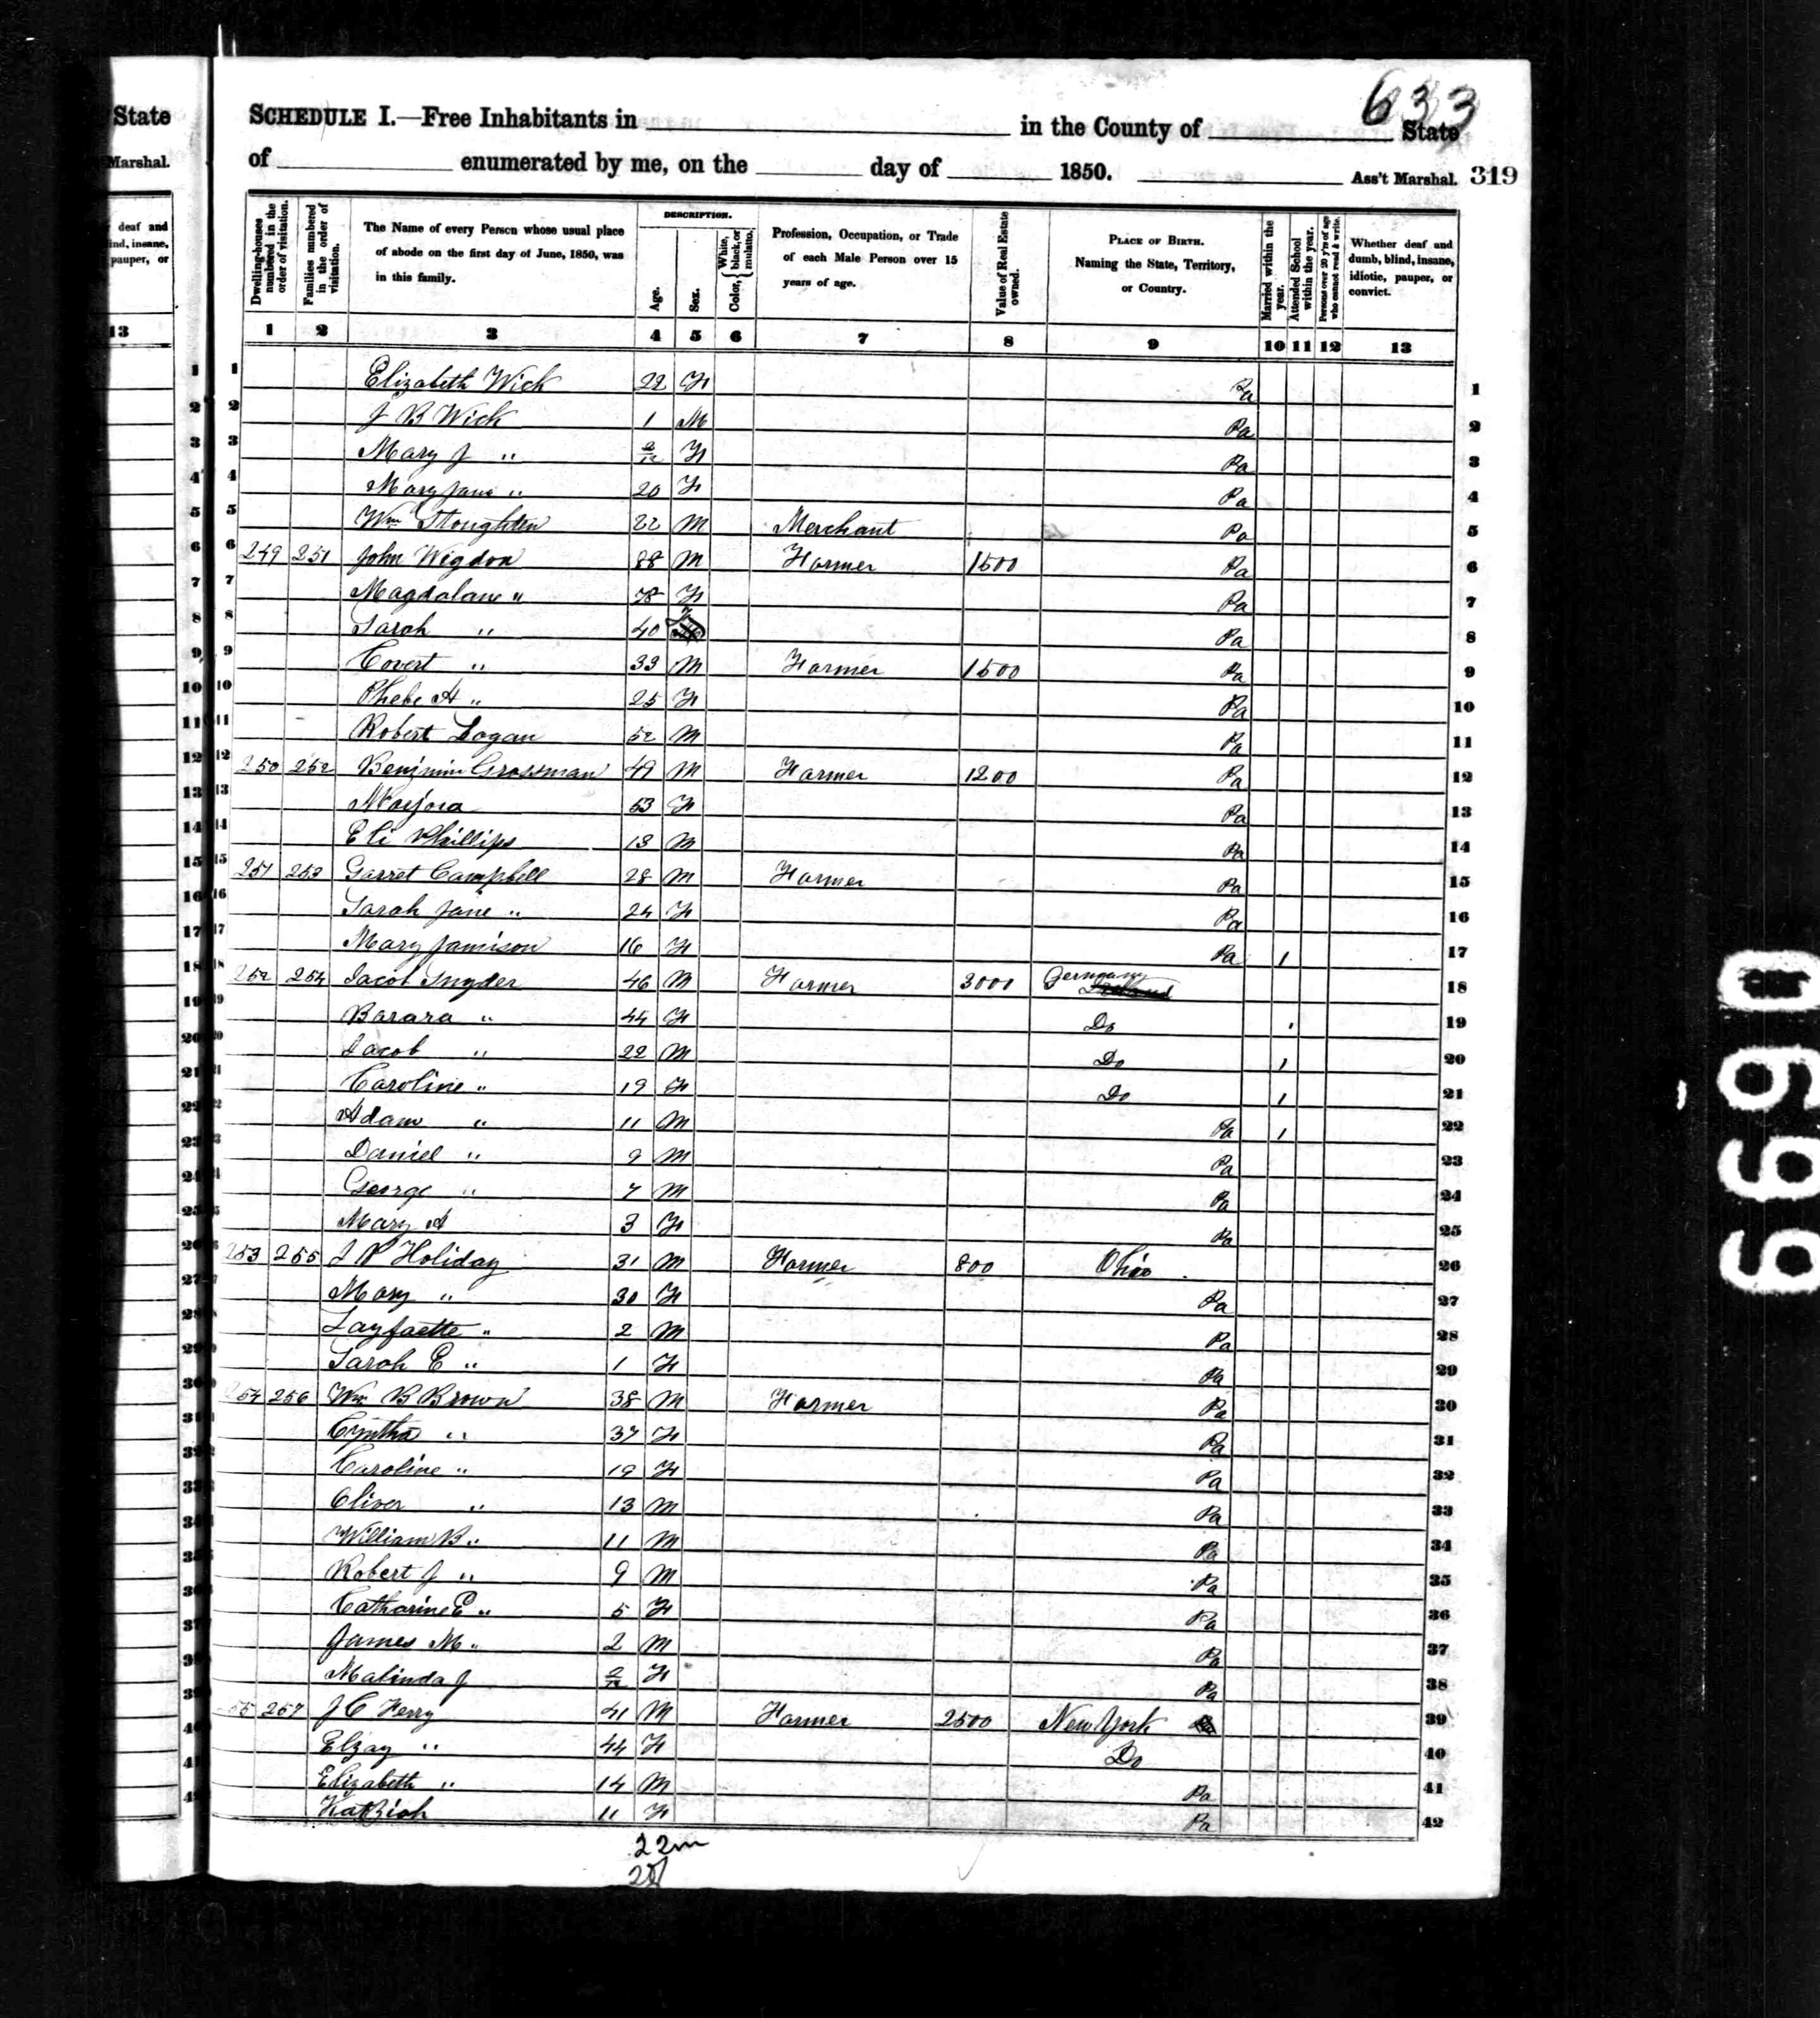 633
State
Marshal.
deaf and
ind, insane,
pauper, or
13
SCHEDULE I.—Free Inhabitants in in the County of State
of enumerated by me, on the day of 1850. Ass't Marshal. 319
Dwelling-houses numbered in the order of visitation.
Families numbered in the order of visitation.
The Name of every Person whose usual place of abode on the first day of June, 1850, was in this family.
DESCRIPTION.
Age.
Sex.
Color, White, black, or mulatto.
Profession, Occupation, or Trade of each Male Person over 15 years of age.
Value of Real Estate owned.
PLACE OF BIRTH. Naming the State, Territory, or Country.
Married within the year.
Attended School within the year.
Persons over 20 y'rs of age who cannot read & write.
Whether deaf and dumb, blind, insane, idiotic, pauper, or convict.
1 2 3 4 5 6 7 8 9 10 11 12 13
1 Elizabeth Wick 22 F Pa 1
2 J B Wick 1 M Pa 2
3 Mary J " 2/12 F Pa 3
4 Mary Jane " 20 F Pa 4
5 Wm Stoughton 22 M Merchant Pa 5
6 249 251 John Wigdon 88 M Farmer 1500 Pa 6
7 Magdalane " 78 F Pa 7
8 Sarah " 40 F Pa 8
9 Covert " 33 M Farmer 1500 Pa 9
10 Phebe A " 25 F Pa 10
11 Robert Logan 52 M Pa 11
12 250 252 Benjmin Grossman 49 M Farmer 1200 Pa 12
13 Marjora 53 F Pa 13
14 Eli Phillips 13 M Pa 14
15 251 253 Garret Campbell 28 M Farmer Pa 15
16 Sarah Jane " 24 F Pa 16
17 Mary Jamison 16 F Pa 1 17
18 252 254 Jacob Snyder 46 M Farmer 3000 Germany 18
19 Barara " 44 F Do 1 19
20 Jacob " 22 M Do 1 20
21 Caroline " 19 F Do 1 21
22 Adam " 11 M Pa 1 22
23 Daniel " 9 M Pa 23
24 George " 7 M Pa 24
25 Mary A 3 F Pa 25
26 253 255 J P Holiday 31 M Farmer 800 Ohio 26
27 Mary " 30 F Pa 27
28 Layfaette " 2 M Pa 28
29 Sarah E " 1 F Pa 29
30 254 256 Wm B Brown 38 M Farmer Pa 30
31 Cyntha " 37 F Pa 31
32 Caroline " 19 F Pa 32
33 Oliver " 13 M Pa 33
34 William B " 11 M Pa 34
35 Robert J " 9 M Pa 35
36 Catharine E " 5 F Pa 36
37 James M " 2 M Pa 37
38 Malinda J 2/12 F Pa 38
39 55 257 J C Ferry 41 M Farmer 2500 New York 39
40 Elzay " 44 F Do 40
41 Elizabeth " 14 M Pa 41
Katziah 11 F Pa 42
22m
0699